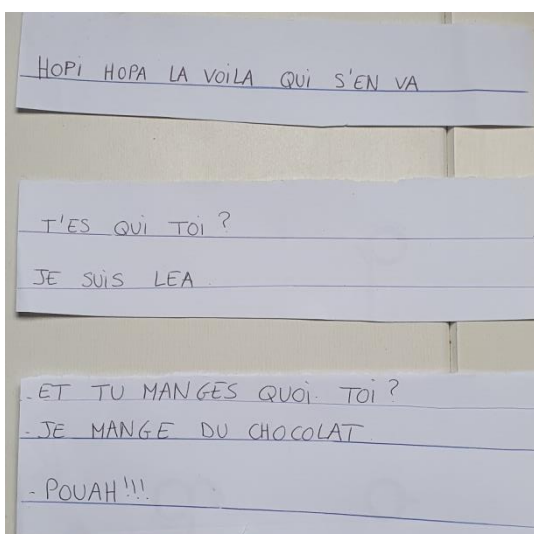 HOPi HOPA LA VOiLA QUi S'EN VA
T'ES QUi TOi ?
JE SUiS LEA.
- ET TU MANGES QUOi TOi ?
- JE MANGE DU CHOCOLAT
- POUAH !!!